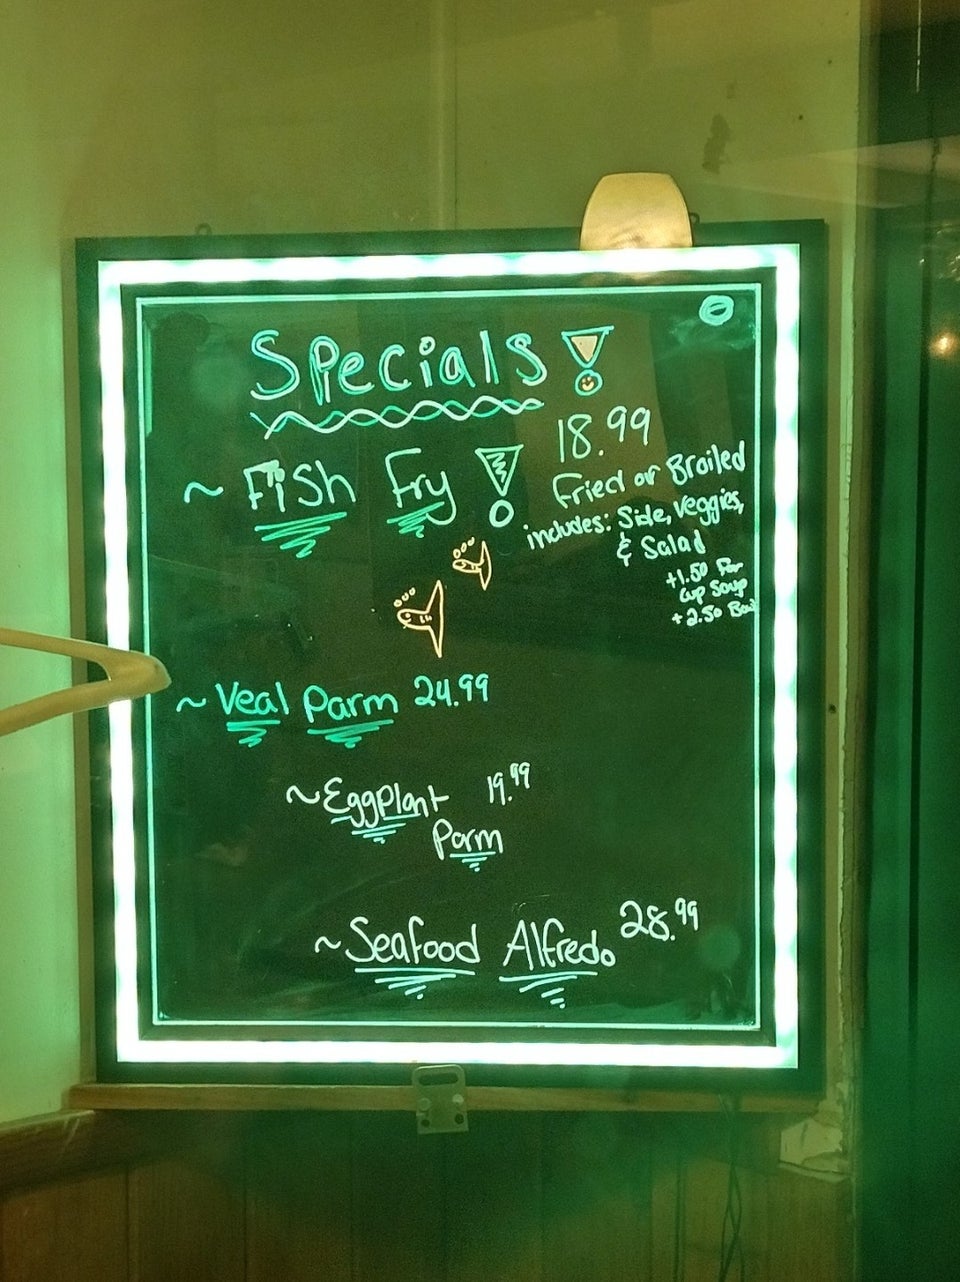 Specials!
~ Fish Fry!
18.99
Fried or Broiled
includes: Side, Veggies,
& Salad
+1.50 For
Cup Soup
+ 2.50 Bowl
~ Veal Parm 24.99
~ Eggplant 19.99
Parm
~ Seafood Alfredo 28.99